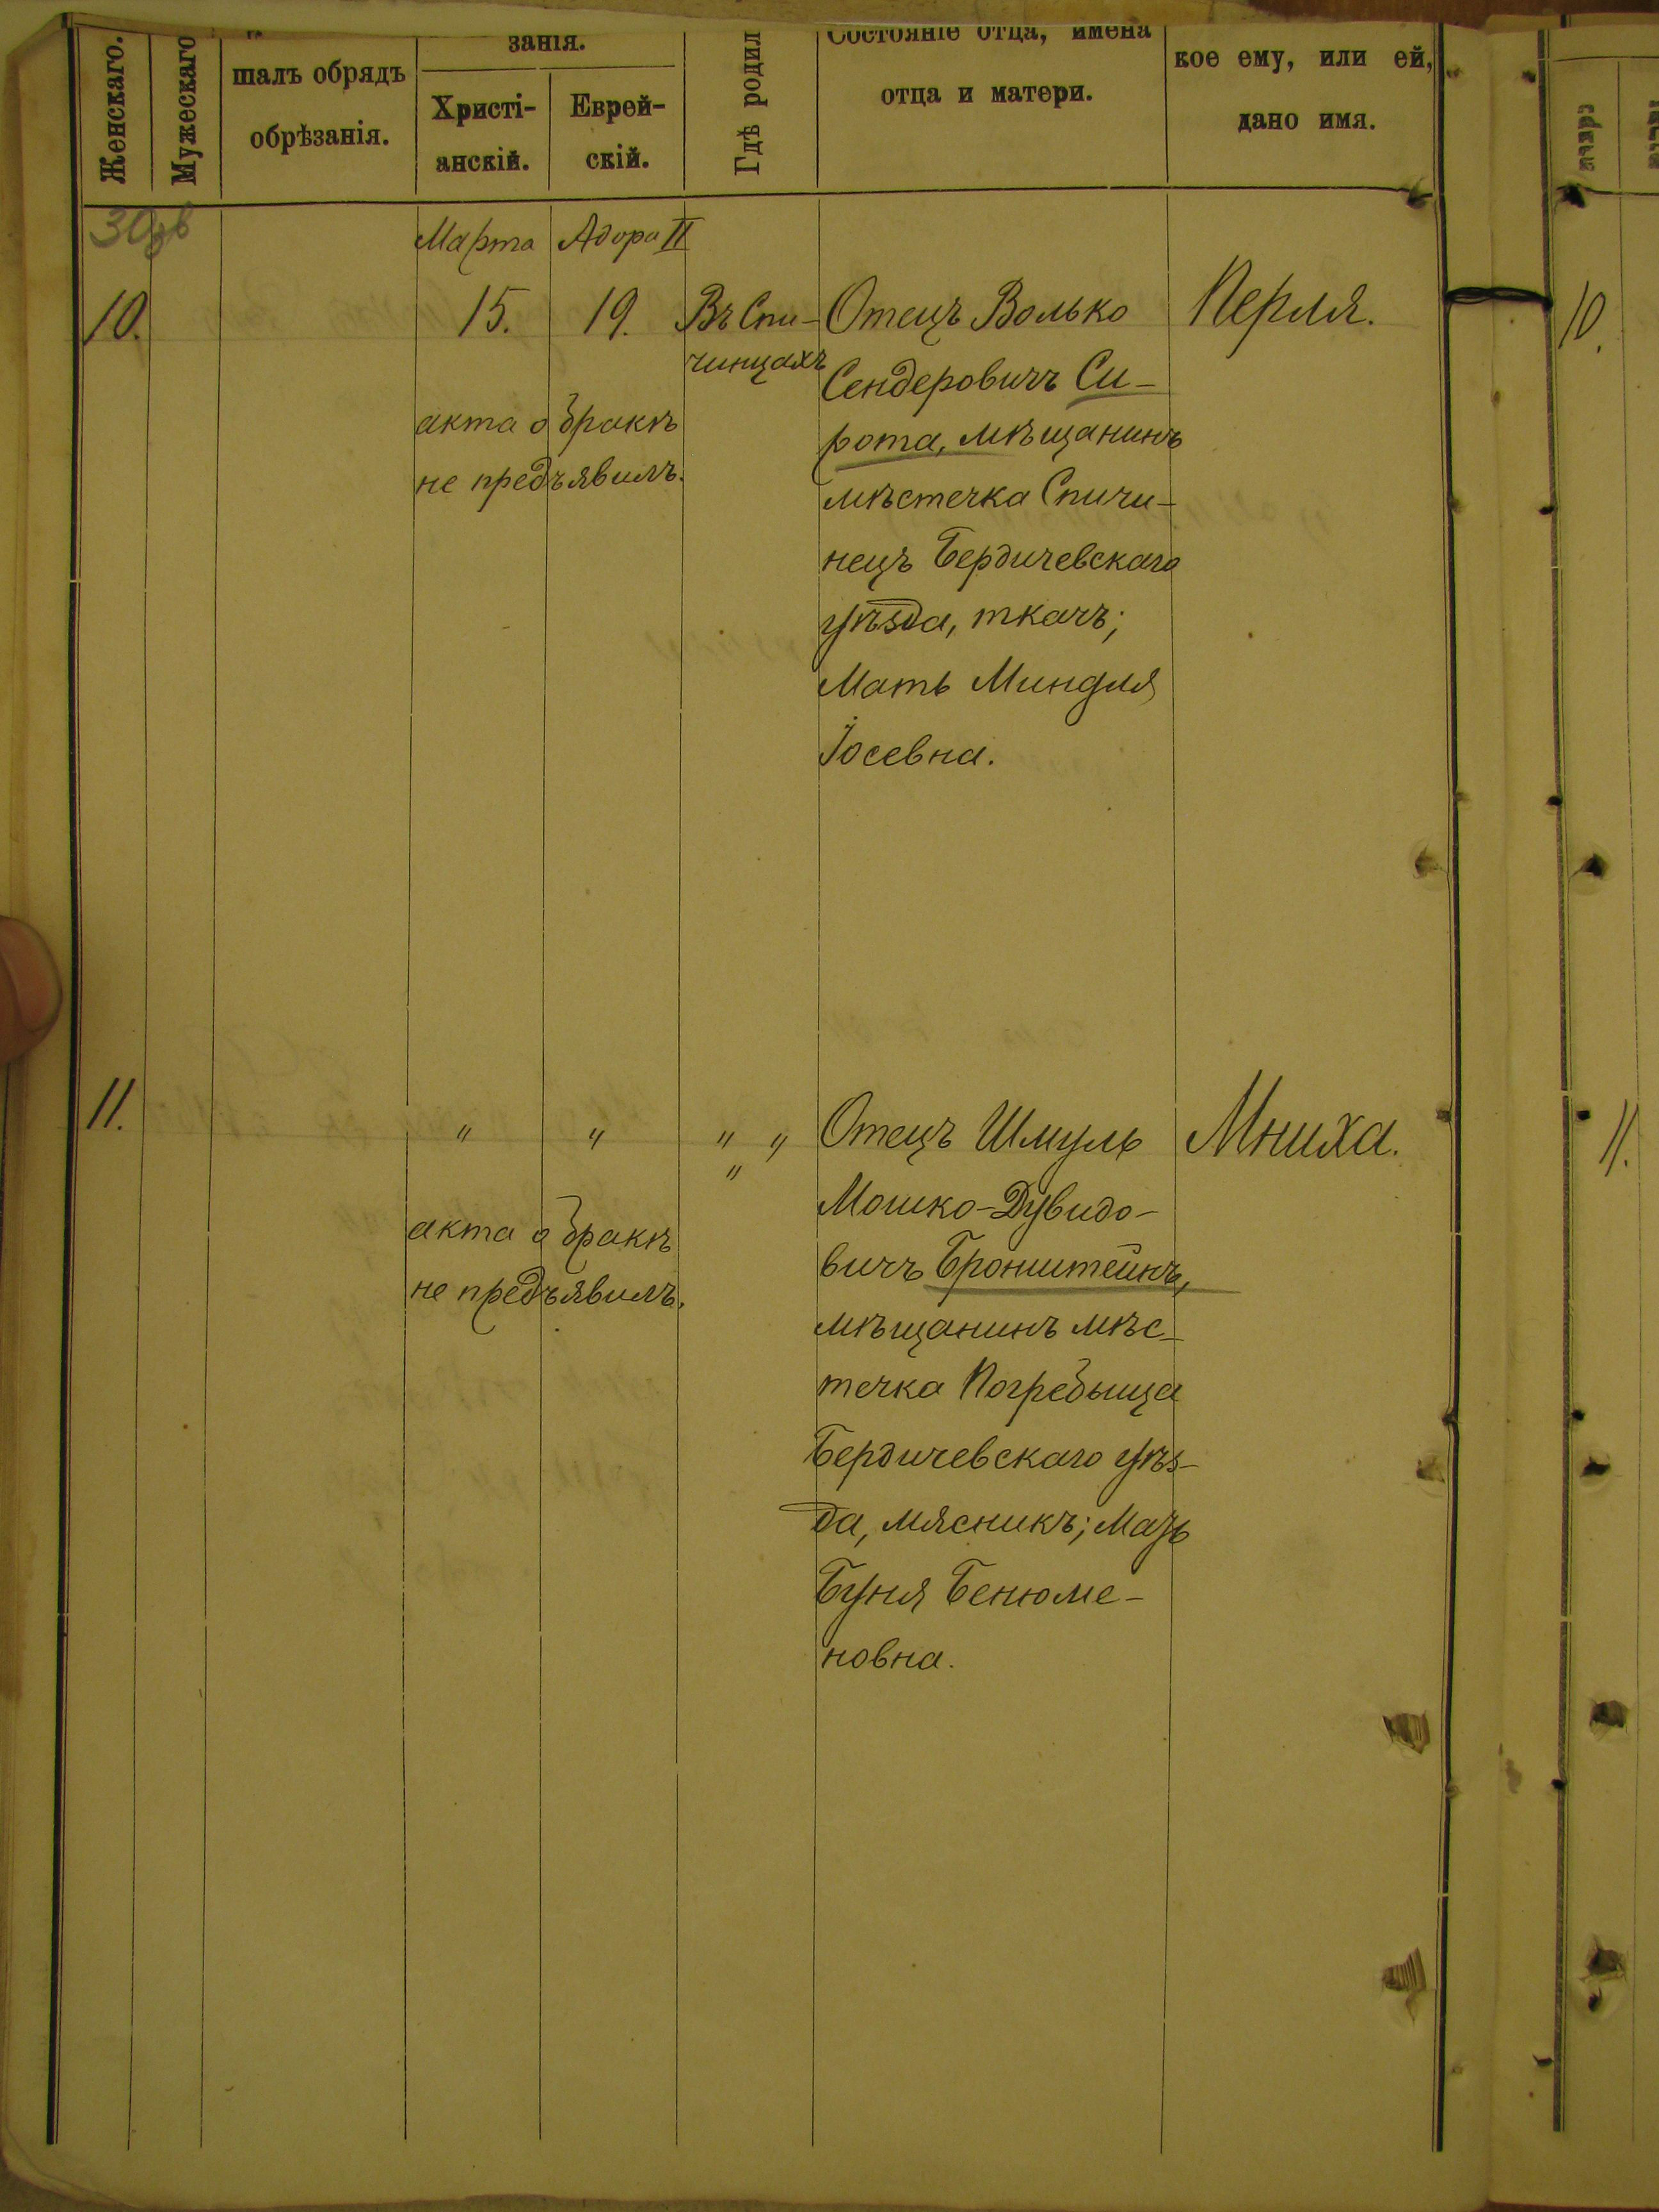 Женскаго.
Мужескаго
шалъ обрядъ
обрѣзанія.
занія.
Христі-
анскій.
Еврей-
скій.
Гдѣ родил
Состояніе отца, имена
отца и матери.
кое ему, или ей,
дано имя.
Марта
Адора II
10.
15.
19.
Въ Спи-
чинцахъ
Отецъ Волько
Сендеровичъ Си-
рота, мѣщанинъ
мѣстечка Спичи-
нецъ Бердичевскаго
уѣзда, ткачъ;
Мать Миндля
Іосевна.
Перля.
10.
акта о бракѣ
не предъявилъ.
11.
" " " "
"
Отецъ Шмуль
Мошко-Дувидо-
вичъ Бронштейнъ,
мѣщанинъ мѣс-
течка Погребыща
Бердичевскаго уѣз-
да, мясникъ; Мать
Буня Бенюме-
новна.
Мниха.
11.
акта о бракѣ
не предъявилъ.